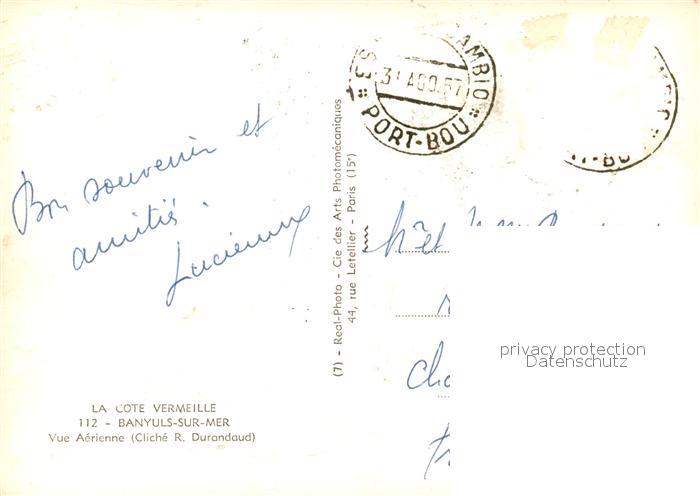 Bon souvenir et
amitiés.
Lucienne
LA COTE VERMEILLE
112 - BANYULS-SUR-MER
Vue Aérienne (Cliché R. Durandaud)
(7) - Real-Photo - Cie des Arts Photomécaniques
44, rue Letellier - Paris (15ᵉ)
CAMBIO
31 AGO.57
PORT-BOU
privacy protection
Datenschutz